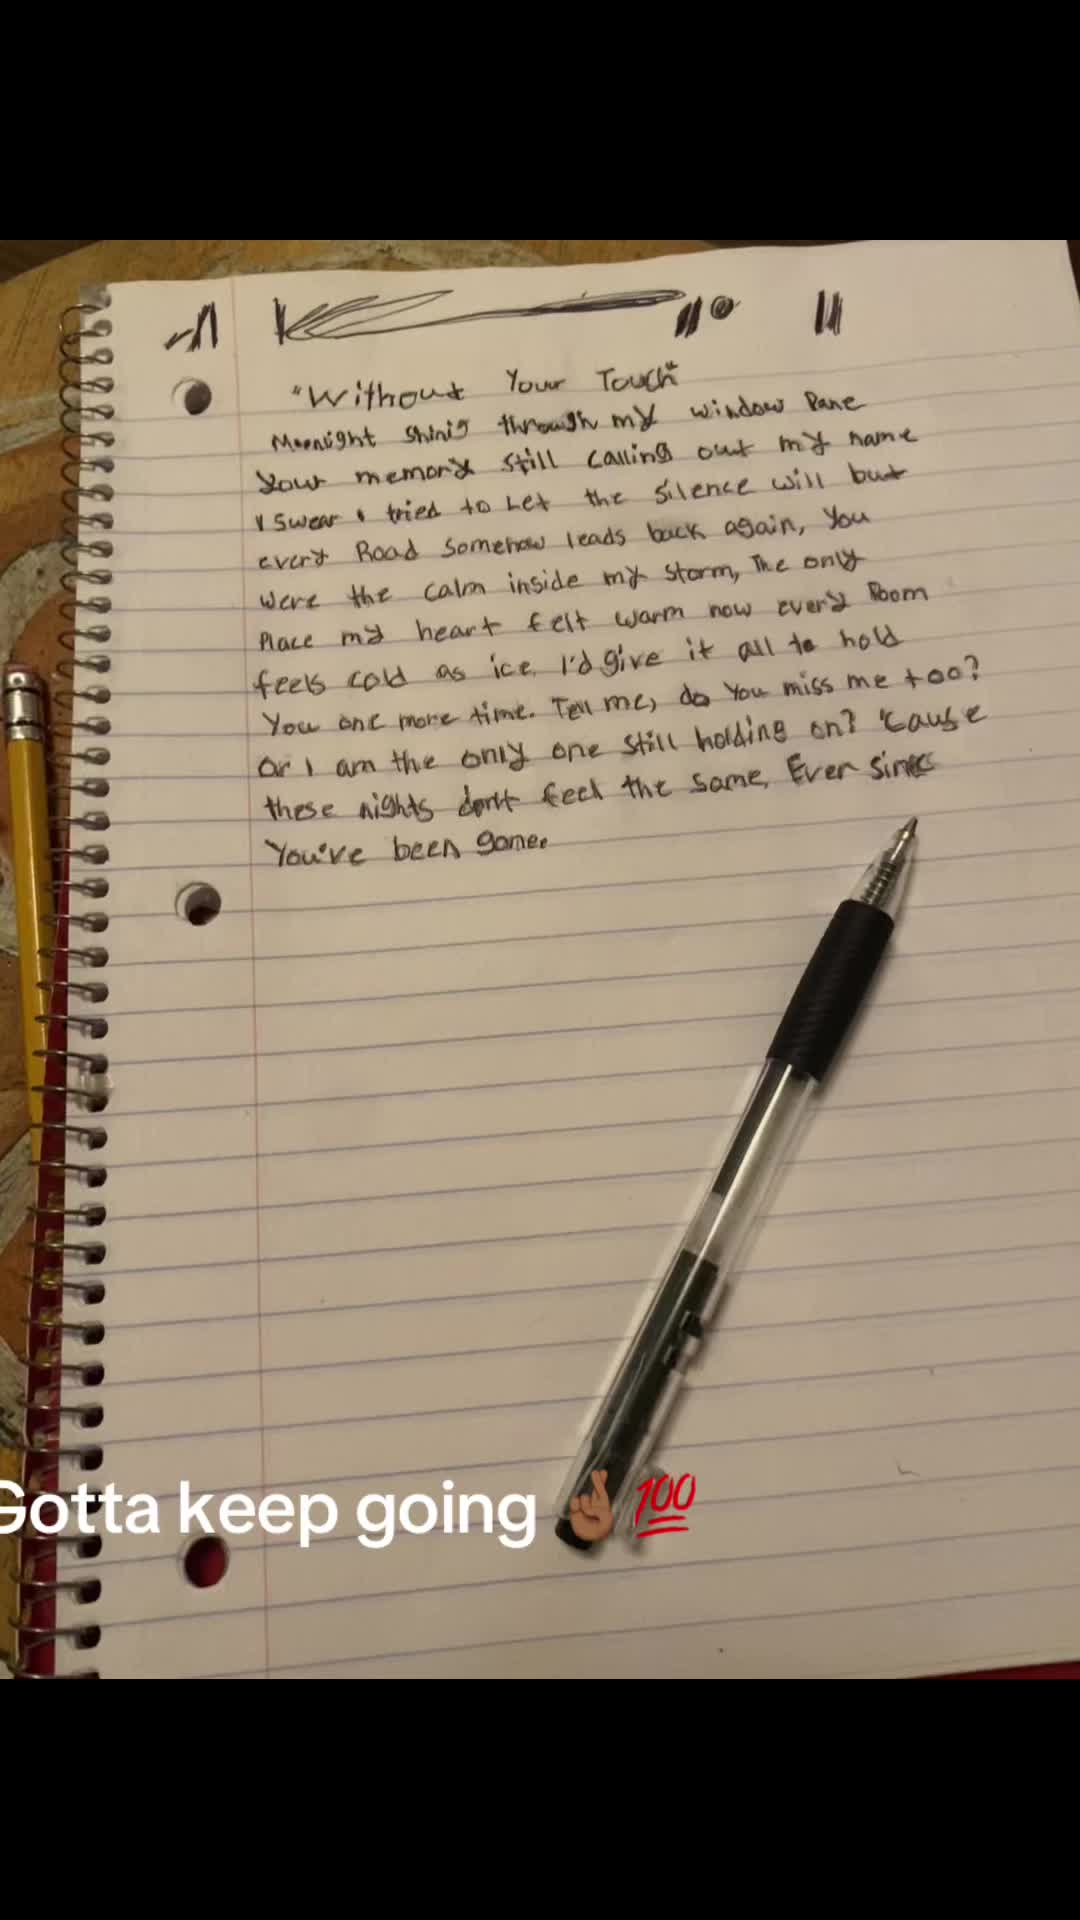 "Without Your Touch"
Moonlight shinig through my window Pane
Your memory still calling out my name
I swear I tried to Let the silence will but
every Road somehow leads back again, You
were the calm inside my storm, The only
Place my heart felt warm now every Room
feels cold as ice. I'd give it all to hold
You one more time. Tell me, do You miss me too?
Or I am the only one still holding on? 'Cause
these nights don't feel the same, Ever since
You've been gone.
Gotta keep going 🤞🏽💯